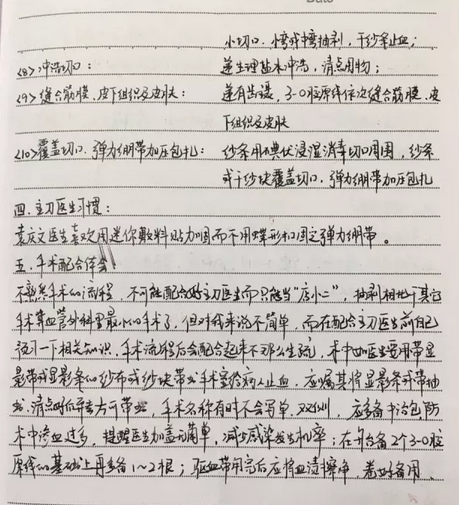 小切口.小弯或中弯抽剥,干纱条止血;
<8>冲洗切口: 递生理盐水冲洗,清点用物;
<9>缝合筋膜、皮下组织及皮肤: 递有齿镊,3-0胶原线依次缝合筋膜、皮
下组织及皮肤
<10>覆盖切口.弹力绷带加压包扎: 纱条用碘伏浸湿消毒切口周围,纱条
或干纱块覆盖切口.弹力绷带加压包扎
四.主刀医生习惯:
袁庆文医生喜欢用迷你敷料贴加固而不用蝶形扣固定弹力绷带。
五.手术配合体会:
不熟悉手术的流程,不可能配合好主刀医生而只能当"店小二",抽剥相比于其它
手算血管外科里最小的手术了,但对我来说不简单,而在配合主刀医生前自己
复习一下相关知识,手术流程后会配合起来不那么生疏,术中如医生要用带显
影带或显影条的纱布或纱块带出手术室给病人止血,应嘱其将显影条或带抽
出,清点时依弃去方可带出,手术名称有时不会写单,双侧,应多备中治包,防
术中渗血过多,提醒医生加盖无菌单,减少感染发生机率;在开台备2个3-0胶
原线的基础上再多备1~2根;驱血带用完后应将血渍擦净,卷好备用